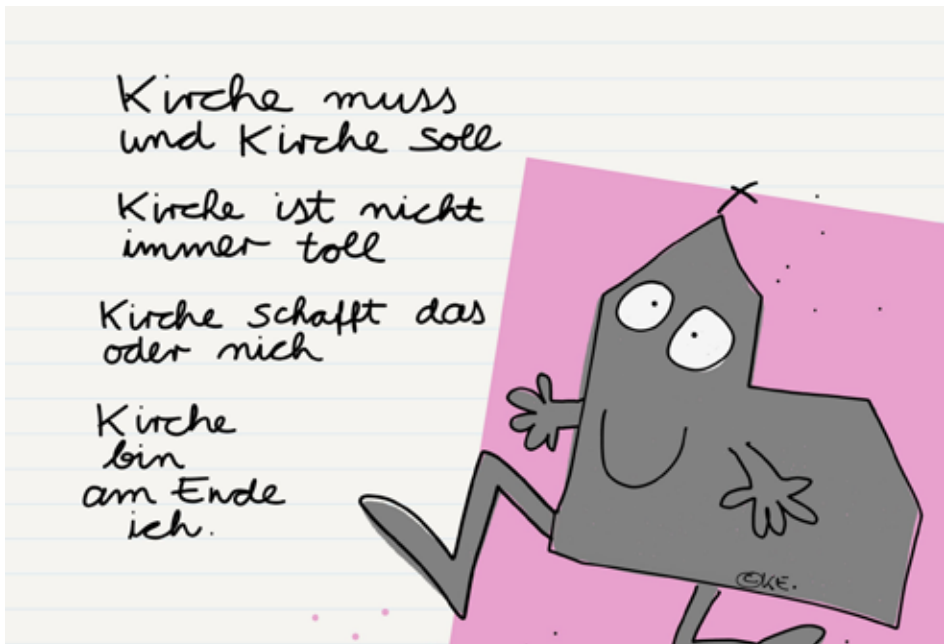 Kirche muss
und Kirche soll
Kirche ist nicht
immer toll
Kirche schafft das
oder nich
Kirche
bin
am Ende
ich.
©KE.